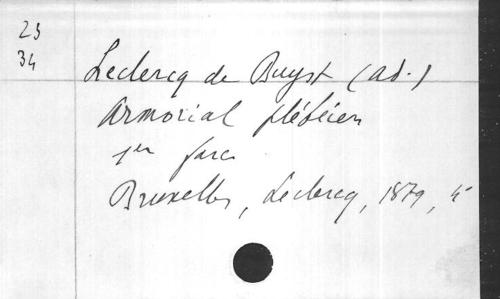 23
34
Leclercq de Buyst (ad.)
Armorial plébéien
1er fasc
Bruxelles, Leclercq, 1879, 4°